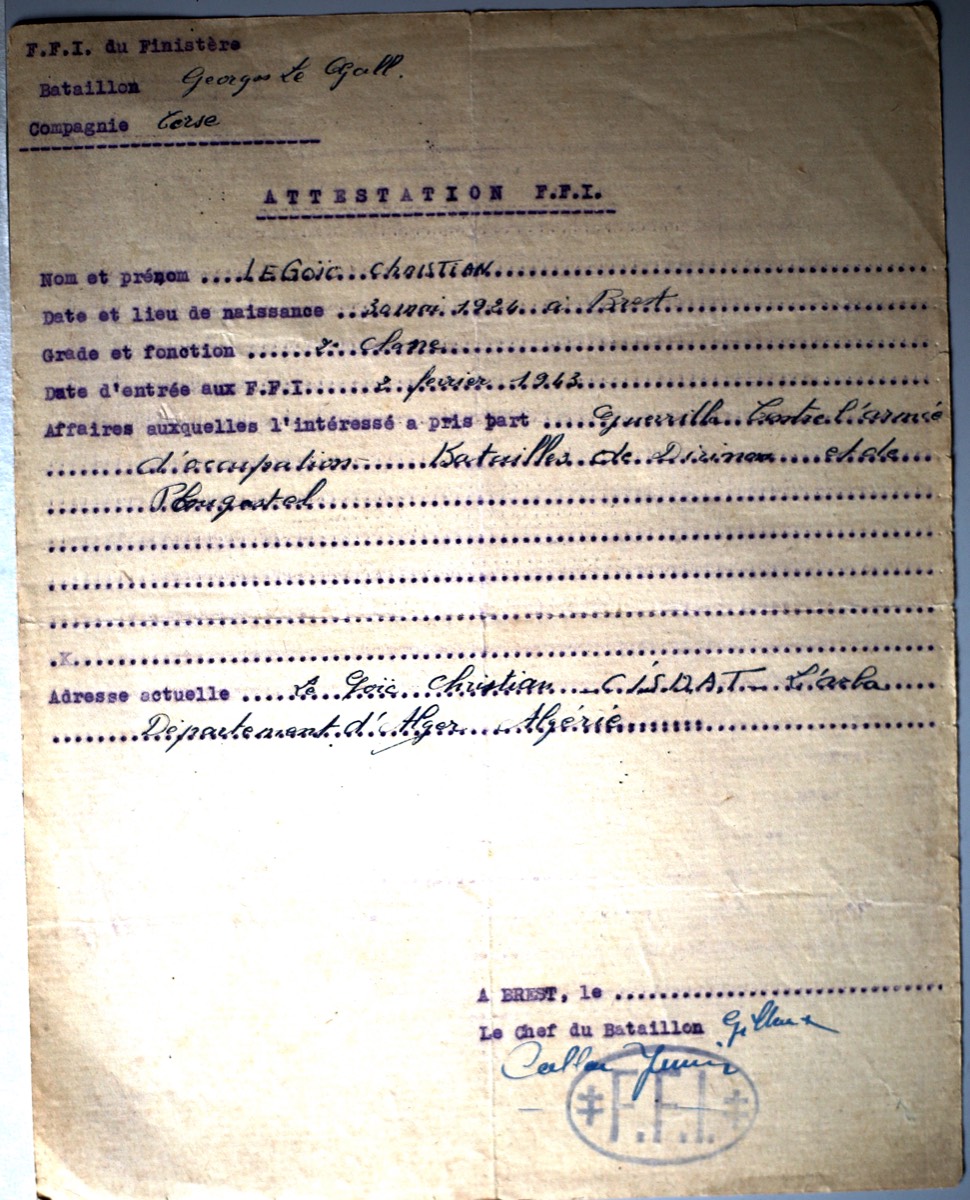 F.F.I. du Finistère
Bataillon Georges Le Gall.
Compagnie
ATTESTATION F.F.I.
Nom et prénom ....LE Goïc...Christian............
Date et lieu de naissance ...30 mai 1924...à...Brest............
Grade et fonction ......2e Classe............
Date d'entrée aux F.F.I......2 février 1943............
Affaires auxquelles l'intéressé a pris part ....Guerrilla Contre l'armée
.......d'occupation......Batailles de Dirinon....et de
.........Plougastel............
............
............
............
.X............
Adresse actuelle ....Le Goïc Christian C.I.S.D.A.T. L'arba...
.......Département d'Alger...Algérie............
A BREST, le ............
Le Chef du Bataillon
‡ F.F.I. ‡